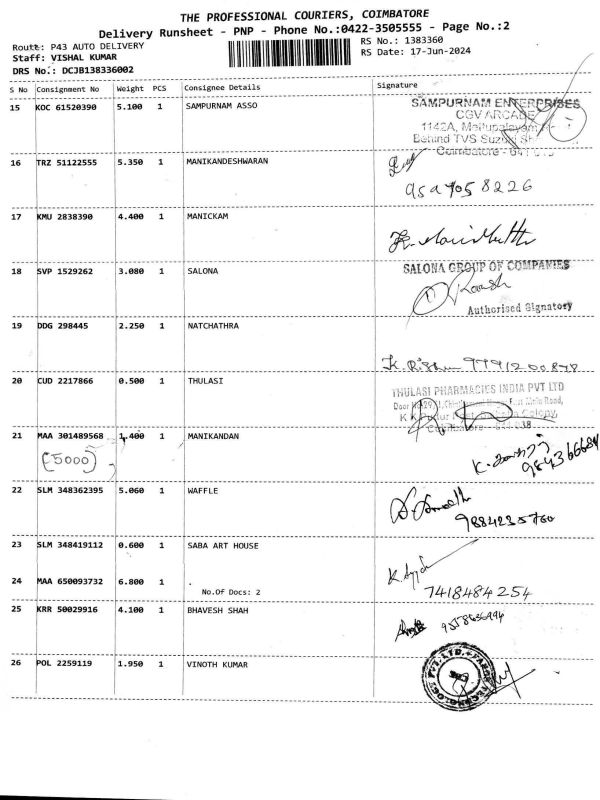 THE PROFESSIONAL COURIERS, COIMBATORE
Delivery Runsheet - PNP - Phone No.:0422-3505555 - Page No.:2
Route: P43 AUTO DELIVERY
Staff: VISHAL KUMAR
DRS No.: DCJB138336002
RS No.: 1383360
RS Date: 17-Jun-2024
S No Consignment No Weight PCS Consignee Details Signature
15 KOC 61520390 5.100 1 SAMPURNAM ASSO
SAMPURNAM ENTERPRISES
CGV ARCADE
1142A, Mettupalayam
Behind TVS Suzuki
Coimbatore - 641
16 TRZ 51122555 5.350 1 MANIKANDESHWARAN
17 KMU 2838390 4.400 1 MANICKAM
18 SVP 1529262 3.080 1 SALONA
SALONA GROUP OF COMPANIES
Authorised Signatory
19 DDG 298445 2.250 1 NATCHATHRA
20 CUD 2217866 0.500 1 THULASI
THULASI PHARMACIES INDIA PVT LTD
Door East Main Road,
Colony,
21 MAA 301489568 1.400 1 MANIKANDAN
(5000)
22 SLM 348362395 5.060 1 WAFFLE
23 SLM 348419112 0.600 1 SABA ART HOUSE
24 MAA 650093732 6.800 1
No.Of Docs: 2
7418484254
25 KRR 50029916 4.100 1 BHAVESH SHAH
26 POL 2259119 1.950 1 VINOTH KUMAR